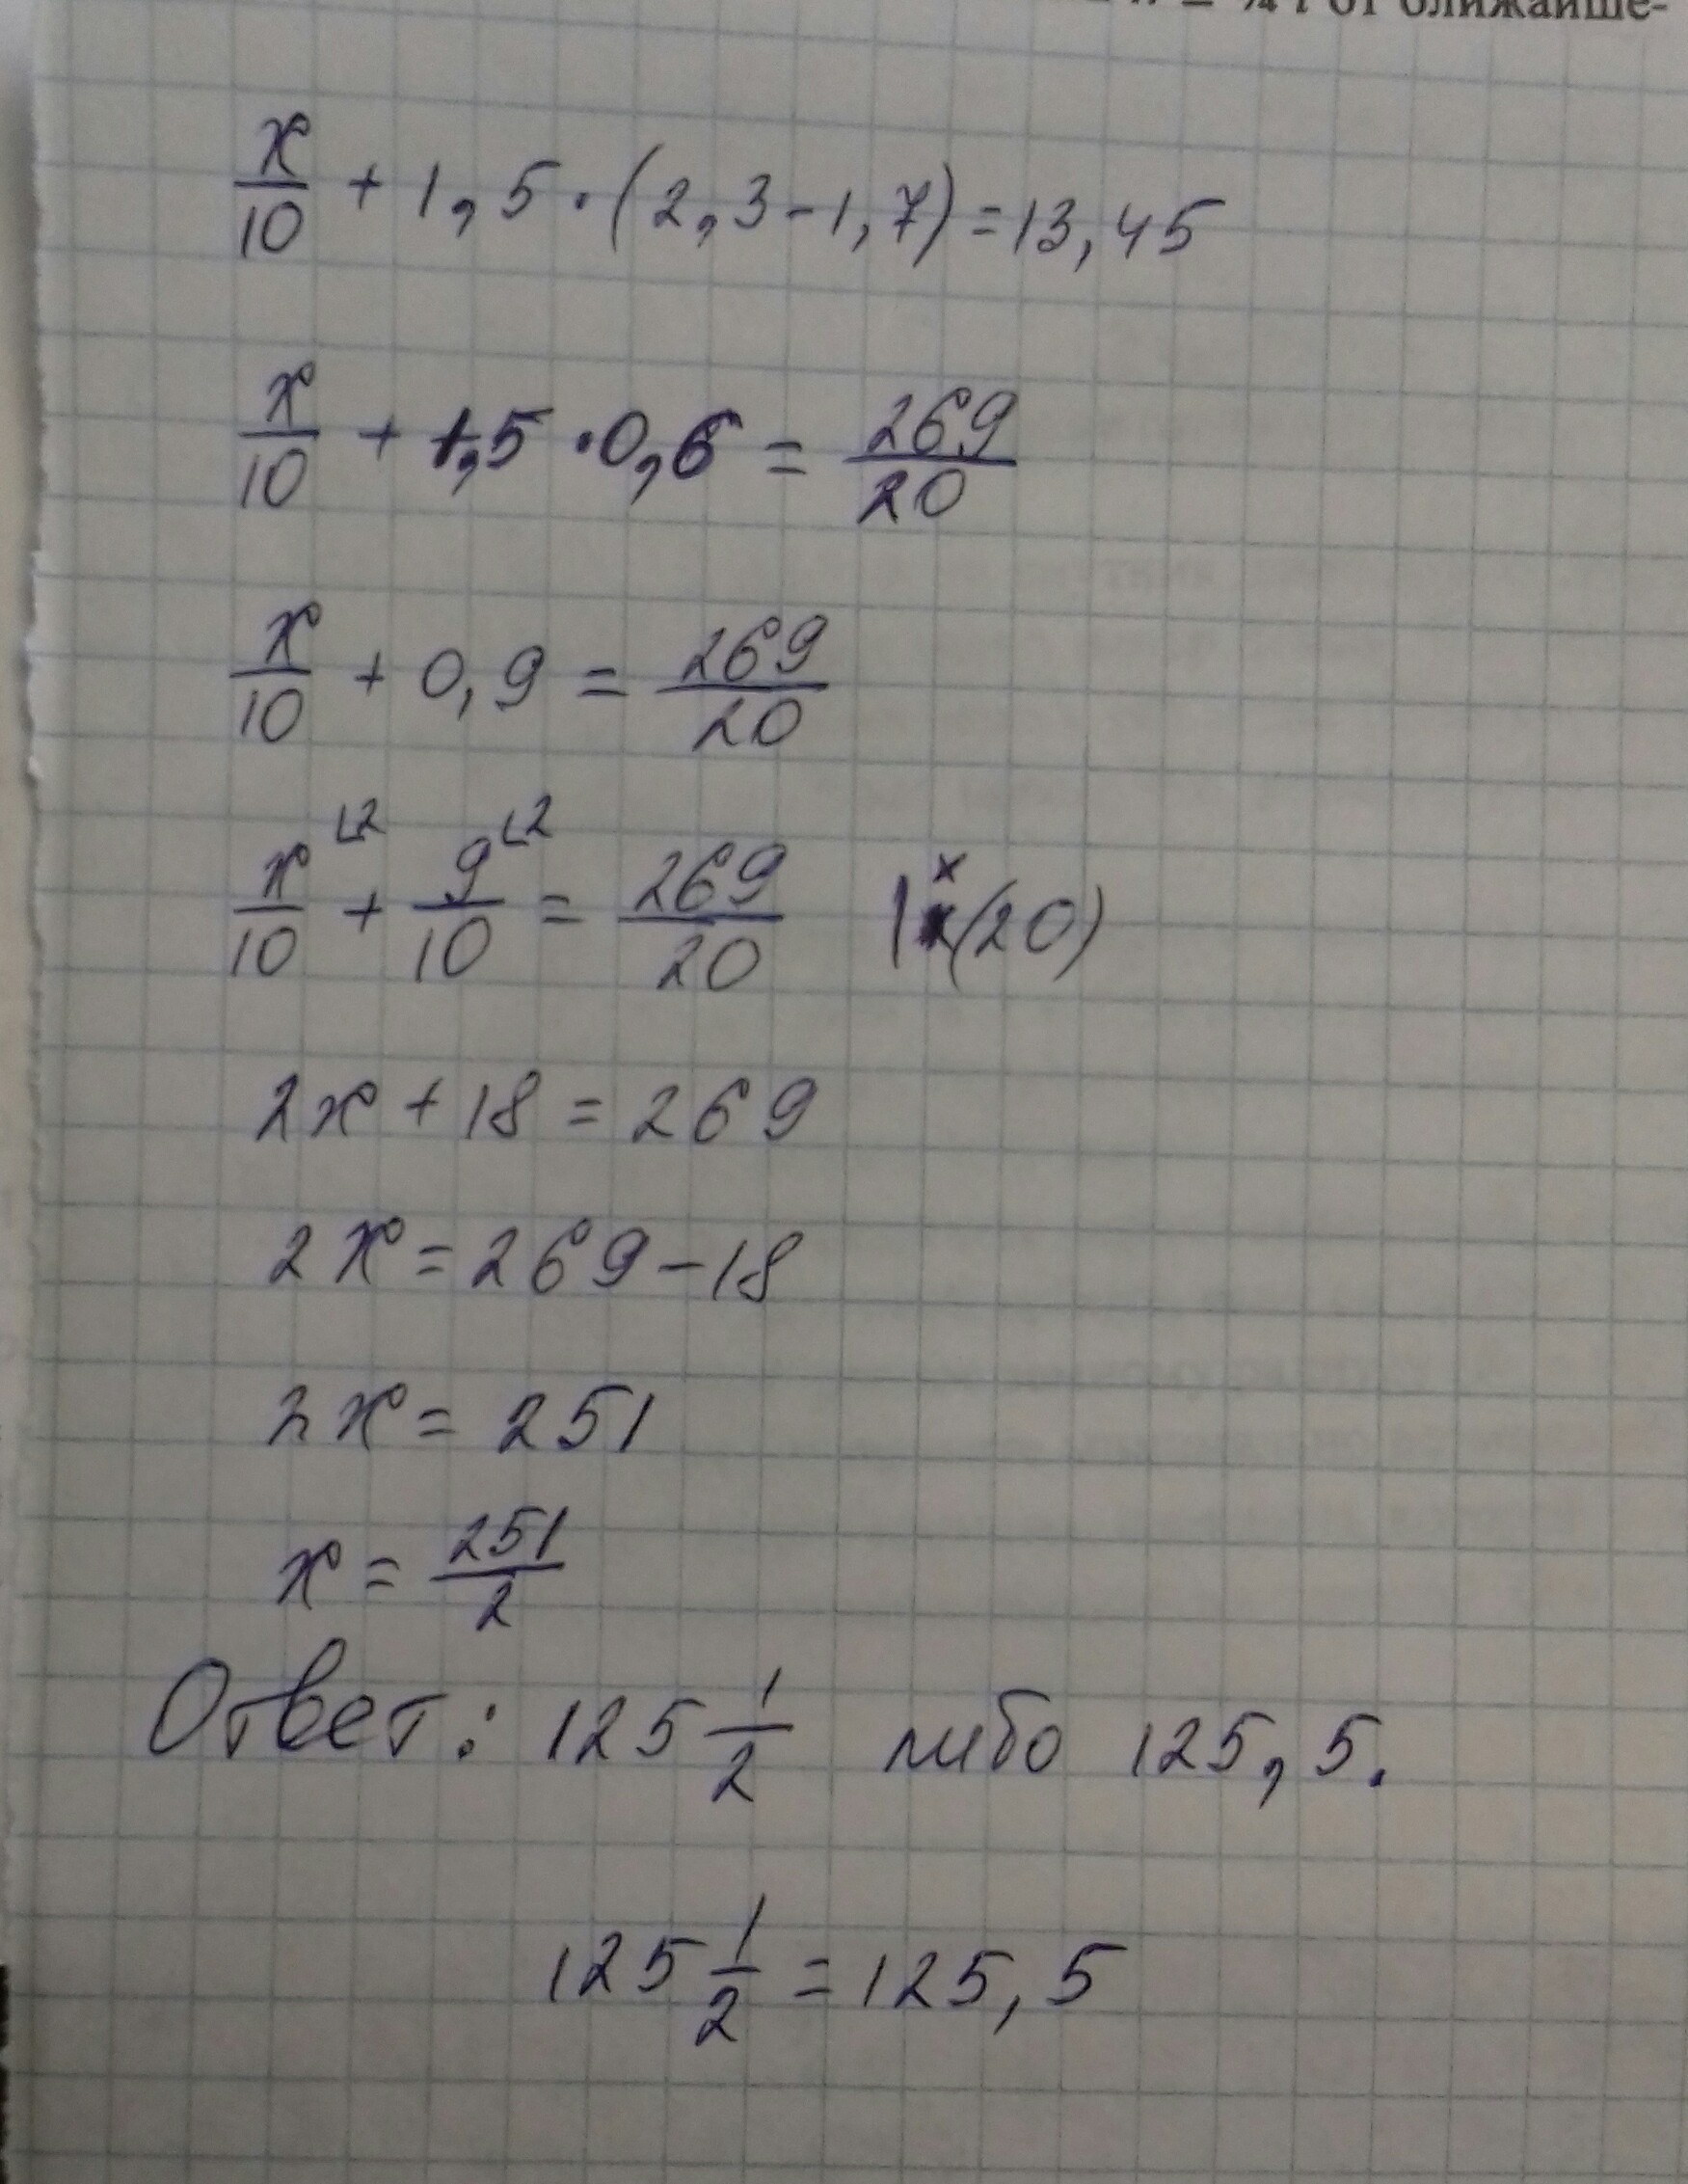 от ближайше-
x/10 + 1,5 · (2,3 - 1,7) = 13,45
x/10 + 1,5 · 0,6 = 269/20
x/10 + 0,9 = 269/20
x/10 ⌊2 + 9/10 ⌊2 = 269/20 | x (20)
2x + 18 = 269
2x = 269 - 18
2x = 251
x = 251/2
Ответ: 125 1/2 либо 125,5.
125 1/2 = 125,5